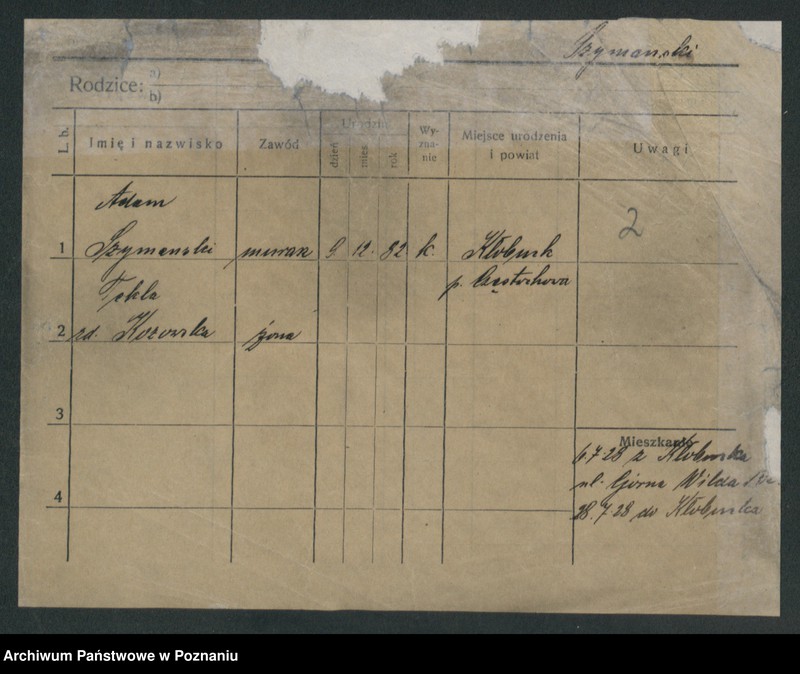 Szymanski
Rodzice: a)
b)
L. b. Imię i nazwisko Zawód Urodzin dzień mies. rok Wyznanie Miejsce urodzenia i powiat Uwagi
Adam
2
1 Szymanski murarz 9. 12. 82 k. Kłobuck
p. Częstochowa
Tekla
2 zd. Kozowska żona
3
Mieszkanie
6.7.28 z Kłobucka
ul. Górna Wilda
4
28.7.28 do Kłobucka
Archiwum Państwowe w Poznaniu